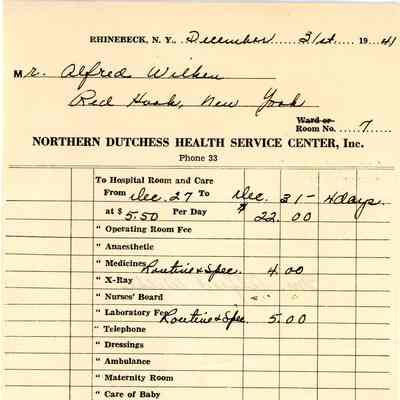 RHINEBECK, N. Y., December 31st 1941
Mr. Alfred Wilken
Red Hook, New York
Ward or
Room No. 7
NORTHERN DUTCHESS HEALTH SERVICE CENTER, Inc.
Phone 33
To Hospital Room and Care
From Dec. 27 To Dec. 31 - 4 days
at $ 5.50 Per Day $ 22.00
" Operating Room Fee
" Anaesthetic
" Medicines Routine & Spec. 4.00
" X-Ray
" Nurses' Board
" Laboratory Fee Routine & Spec. 5.00
" Telephone
" Dressings
" Ambulance
" Maternity Room
" Care of Baby